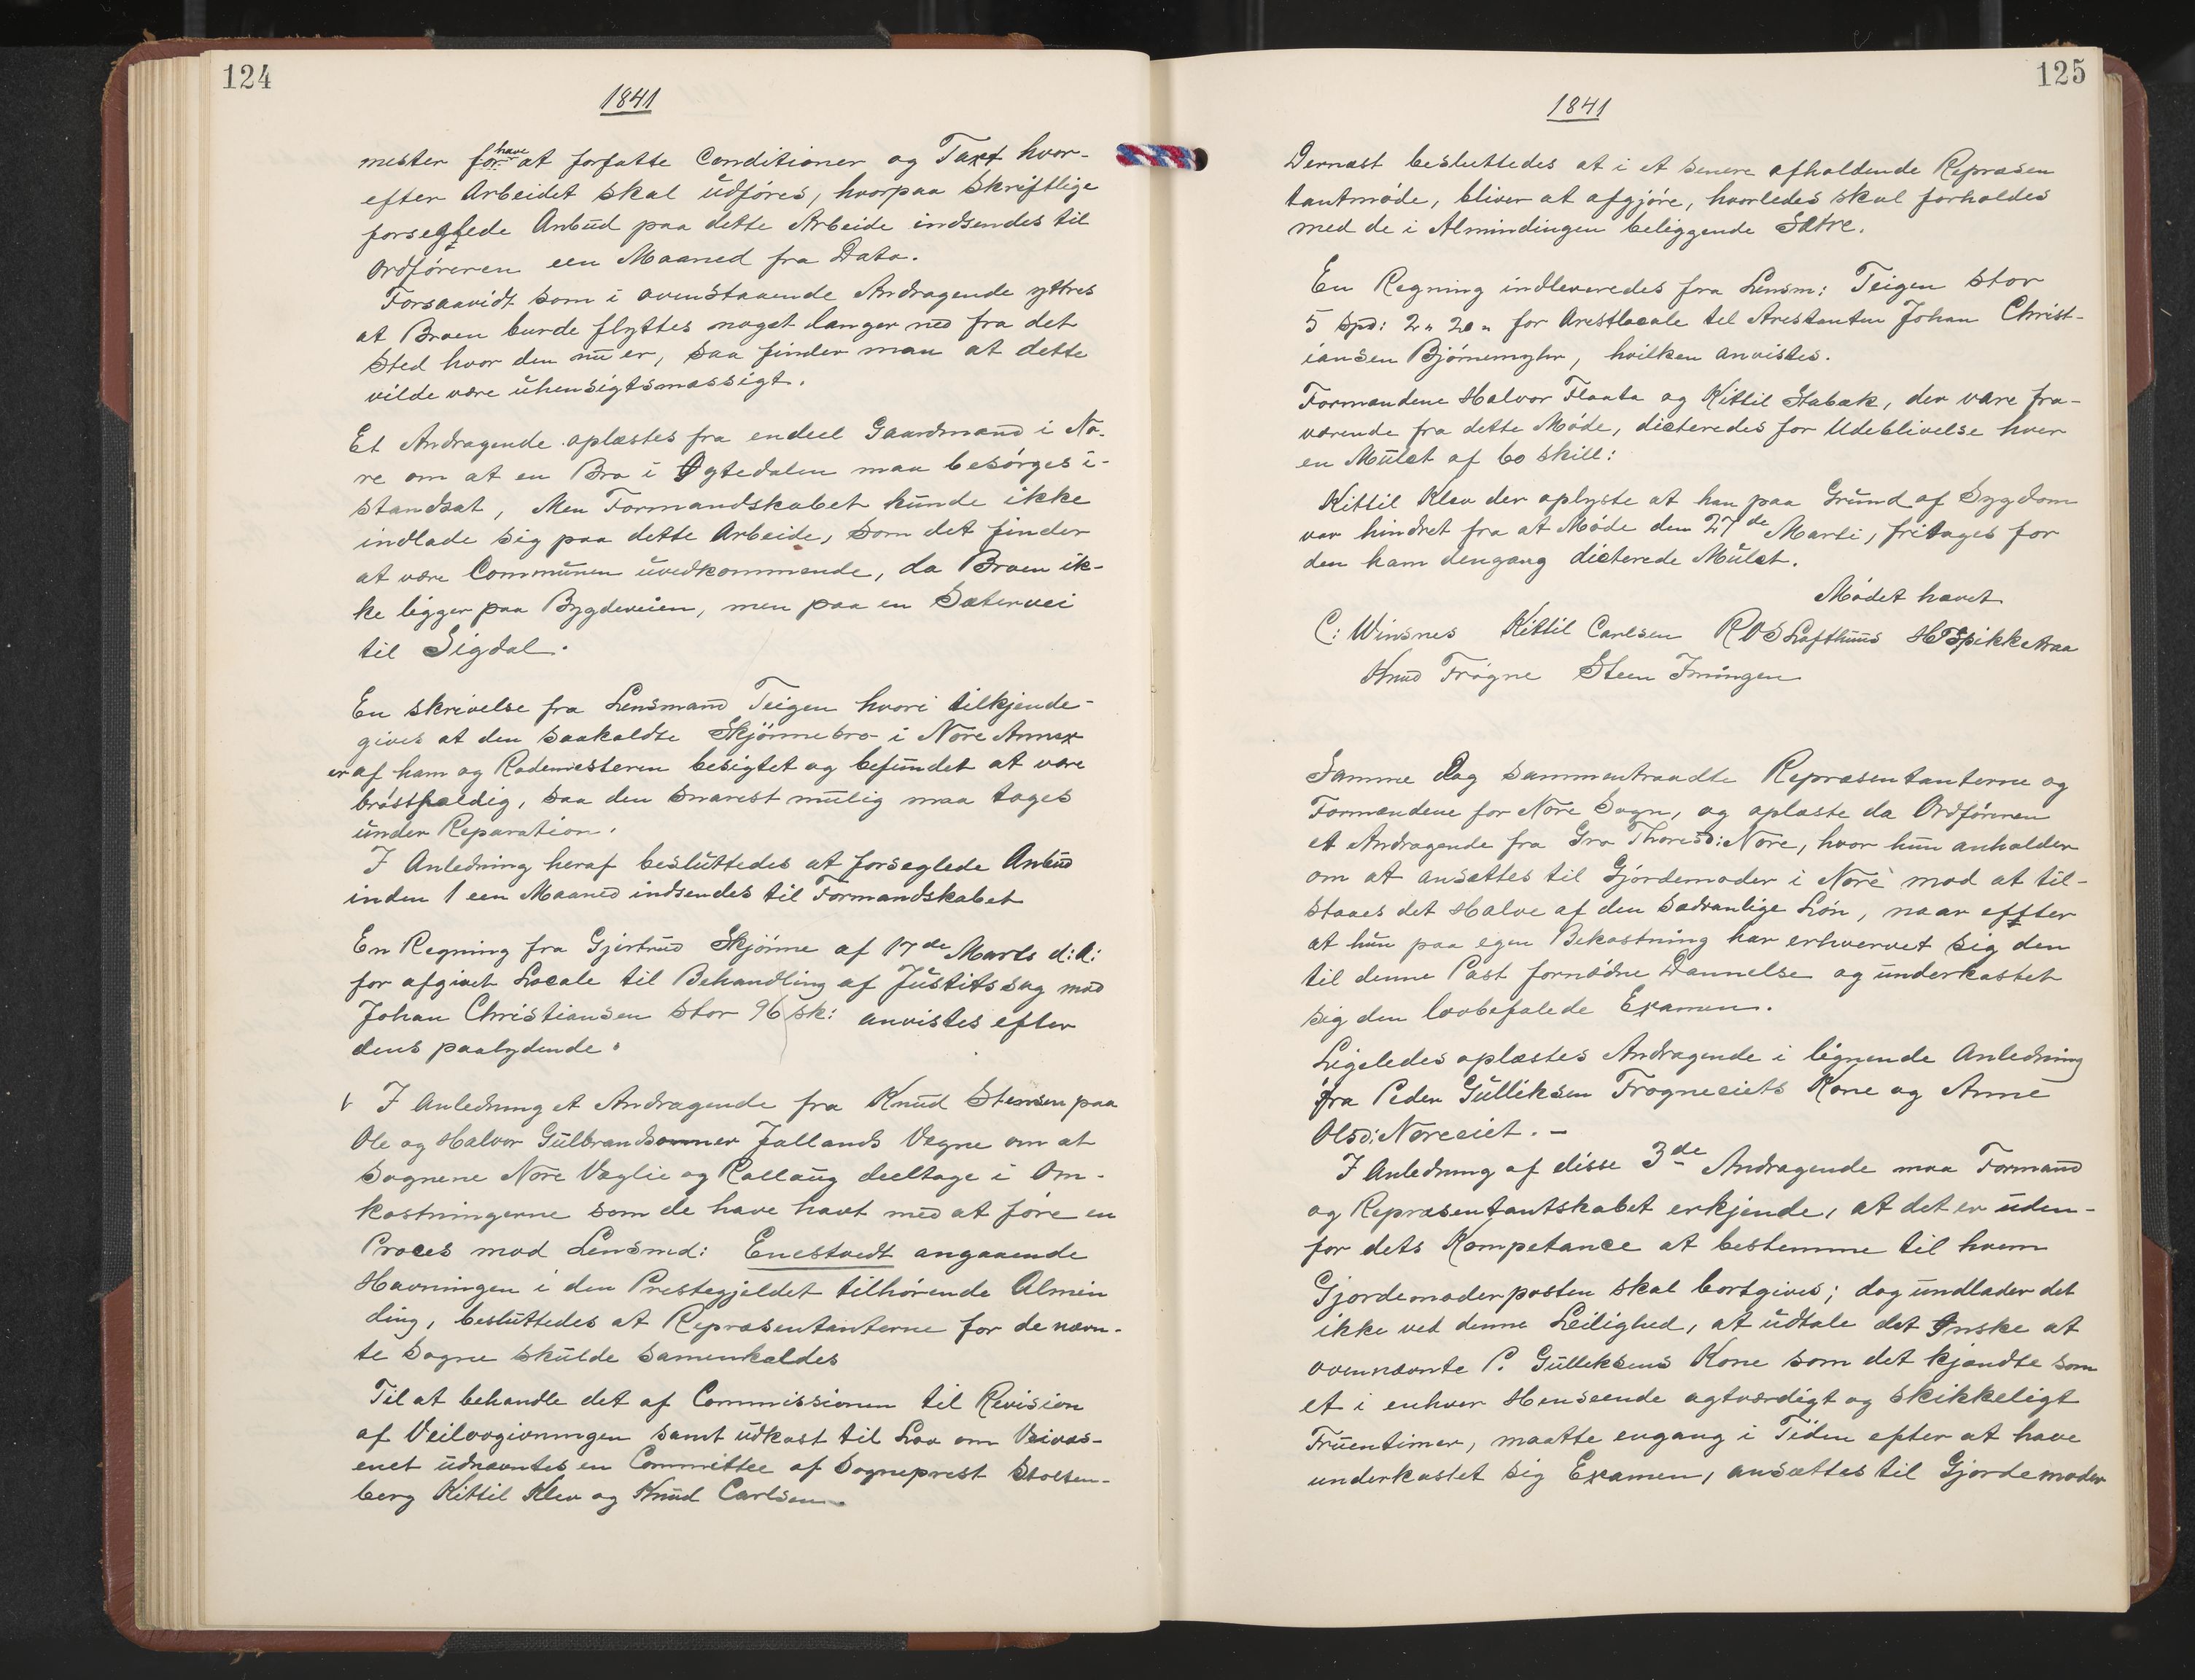 124
1841
mester for have at forfatte Conditioner og Taxt hvor-
efter Arbeidet skal udføres, hvorpaa Skriftlige
forseglede Anbud paa dette Arbeide indsendes til
Ordføreren een Maaned fra Dato.
Forsaavidt som i ovenstaaende Andragende yttres
at Broen burde flyttes noget længer ned fra det
Sted hvor den nu er, saa finder man at dette
vilde være uhensigtsmæssigt.
Et Andragende oplæstes fra endeel Gaardmænd i No-
re om at en Bro i Øgtedalen maa besørges i-
standsat, Men Formandskabet kunde ikke
indlade sig paa dette Arbeide, som det finder
at være Communen uvedkommende, da Broen ik-
ke ligger paa Bygdeveien, men paa en Sætervei
til Sigdal.
En skrivelse fra Lensmand Teigen hvori tilkjende-
gives at den saakaldte Skjønnebro i Nore Annex
er af ham og Rodemesteren besigtet og befundet at være
brøstfældig, saa den snarest mulig maa tages
under Reparation.
I Anledning heraf besluttedes at forseglede Anbud
inden 1 een Maaned indsendes til Formandskabet
En Regning fra Gjertrud Skjønne af 17de Marts d:A:
for afgivet Locale til Behandling af Justitssag mod
Johan Christiansen stor 96 sk: anvistes efter
dens paalydende.
I Anledning et Andragende fra Knud Stensen paa
Ole og Halvor Gulbrandsønner Jallands Vegne om at
Sognene Nore Væglie og Rollaug deeltage i Om-
kostningerne som de have havt med at føre en
Proces mod Lensmd: Enestvedt angaaende
Havningen i den Prestegjeldet tilhørende Almin
ding, besluttedes at Repræsentanterne for de nævn-
te Sogne skulde samenkaldes
Til at behandle det af Commissionen til Revision
af Veilovgivningen samt udkast til Lov om Veivæs-
enet udnævntes en Committee af Sogneprest Stolten-
berg Kittil Klev og Knud Carlsen.
125
1841
Dernæst besluttedes at i et senere afholdende Repræsen
tantmøde, bliver at afgjøre, hvorledes skal forholdes
med de i Almindingen beliggende Sætre.
En Regning indleveredes fra Lensm: Teigen stor
5 Spd: 2 " 20 " for Arestlocale til Arestanten Johan Christ-
iansen Bjørnemyhr, hvilken anvistes.
Formændene Halvor Flaata og Kittil Stabæk, der vare fra-
værende fra dette Møde, dicteredes for Udeblivelse hver
en Mulct af 60 skill:
Kittil Klev der oplyste at han paa Grund af Sygdom
var hindret fra at Møde den 27de Marti, fritages for
den ham dengang dicterede Mulct.
Mødet hævet
C: Winsnes Kittil Carlsen R O S Lofthuus H T Spikkeraa
Knud Frøgne Steen Juvingen
Samme Dag sammentraadte Repræsentanterne og
Formændene for Nore Sogn, og oplæste da Ordføreren
et Andragende fra Gro Thoresd: Nore, hvor hun anholder
om at ansættes til Gjordemoder i Nore mod at til-
staaes det Halve af den sædvanlige Løn, naar effter
at hun paa egen Bekostning har erhvervet sig den
til denne Post fornødne Dannelse og underkastet
sig den lovbefalede Examen.
Ligeledes oplæstes Andragende i lignende Anledning
fra Peder Gulliksen Frogneeiets Kone og Anne
Olsd: Noreeiet. -
I Anledning af disse 3de Andragende maa Formand
og Repræsentantskabet erkjende, at det er uden-
for dets Kompetance at bestemme til hvem
Gjordemoderposten skal bortgives; dog undlader det
ikke ved denne Leilighed, at udtale det Ønske at
ovennævnte P. Gulleksens Kone som det kjændte som
et i enhver Henseende agtværdigt og skikkeligt
Fruentimer, maatte engang i Tiden efter at have
underkastet sig Examen, ansættes til Gjordemoder